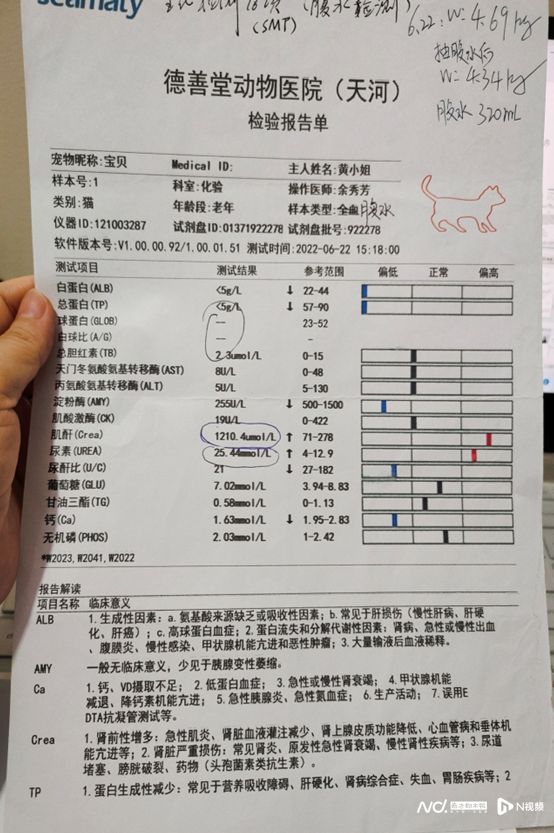 seamaty
(SMT)
6.22: W: 4.69kg
抽腹水后
W: 4.34kg
腹水 320mL
德善堂动物医院（天河）
检验报告单
宠物昵称:宝贝 Medical ID: 主人姓名:黄小姐
样本号:1 科室:化验 操作医师:余秀芳
类别:猫 年龄段:老年 样本类型:全血腹水
仪器ID:121003287 试剂盘ID:01371922278 试剂盘批号:922278
软件版本号:V1.00.00.92/1.00.01.51 测试时间:2022-06-22 15:18:00
测试项目 测试结果 参考范围 偏低 正常 偏高
白蛋白(ALB) <5g/L ↓ 22-44
总蛋白(TP) <5g/L ↓ 57-90
球蛋白(GLOB) -- 23-52
白球比(A/G) -- -
总胆红素(TB) 2.3umol/L 0-15
天门冬氨酸氨基转移酶(AST) 8U/L 0-48
丙氨酸氨基转移酶(ALT) 5U/L 5-130
淀粉酶(AMY) 255U/L ↓ 500-1500
肌酸激酶(CK) 19U/L 0-422
肌酐(Crea) 1210.4umol/L ↑ 71-278
尿素(UREA) 25.44mmol/L ↑ 4-12.9
尿酐比(U/C) 21 ↓ 27-182
葡萄糖(GLU) 7.02mmol/L 3.94-8.83
甘油三酯(TG) 0.58mmol/L 0-1.13
钙(Ca) 1.63mmol/L ↓ 1.95-2.83
无机磷(PHOS) 2.03mmol/L 1-2.42
*W2023,W2041,W2022
报告解读
项目名称 临床意义
ALB 1.生成性因素: a.氨基酸来源缺乏或吸收性因素; b.常见于肝损伤（慢性肝病、肝硬
化、肝癌）; c.高球蛋白血症; 2.蛋白流失和分解代谢性因素: 肾病、急性或慢性出血
、腹膜炎、慢性感染、甲状腺机能亢进和恶性肿瘤; 3.大量输液后血液稀释。
AMY 一般无临床意义，少见于胰腺变性萎缩。
Ca 1.钙、VD摄取不足; 2.低蛋白血症; 3.急性或慢性肾衰竭; 4.甲状腺机能
减退、降钙素机能亢进; 5.急性胰腺炎、急性氮血症; 6.生产活动; 7.误用E
DTA抗凝管测试等。
Crea 1.肾前性增多: 急性肌炎、肾脏血液灌注减少、肾上腺皮质功能降低、心血管病和垂体机
能亢进等; 2.肾脏严重损伤: 常见肾炎、原发性急性肾衰竭、慢性肾性疾病等; 3.尿道
堵塞、膀胱破裂、药物（头孢菌素类抗生素）。
TP 1.蛋白生成性减少: 常见于营养吸收障碍、肝硬化、肾病综合症、失血、胃肠疾病等; 2
南方都市报 N视频